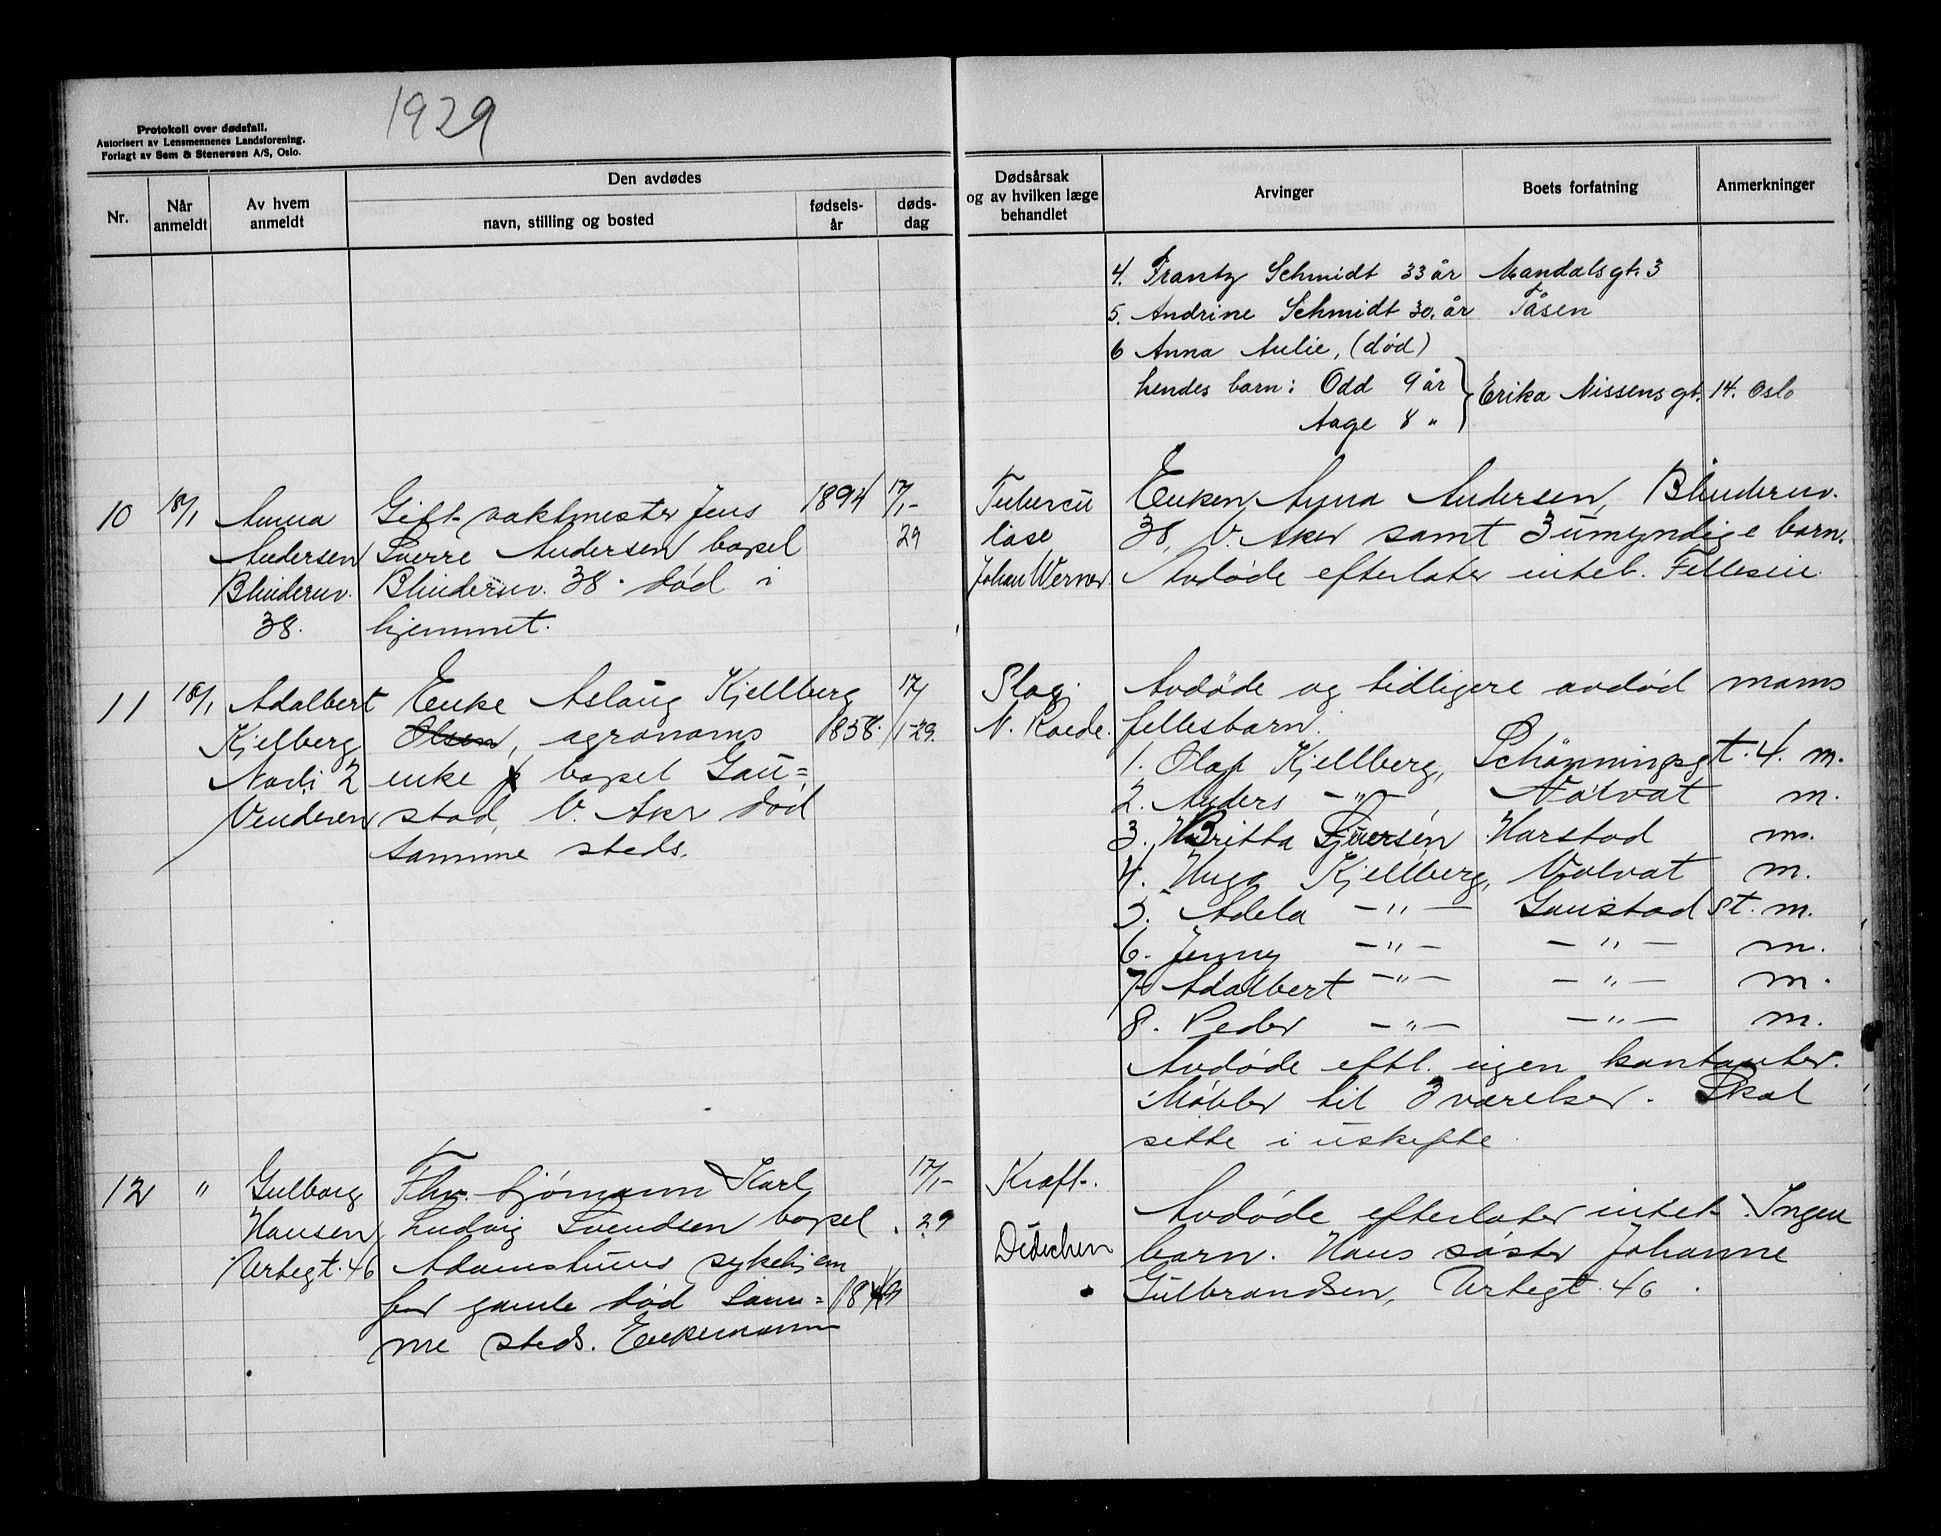 1929
Protokoll over dødsfall.
Autorisert av Lensmennenes Landsforening.
Forlagt av Sem & Stenersen A/S, Oslo.
Nr.
Når anmeldt
Av hvem anmeldt
Den avdødes
navn, stilling og bosted
fødsels-år
døds-dag
Dødsårsak og av hvilken læge behandlet
Arvinger
Boets forfatning
Anmerkninger
4. Frantz Schmidt 33 år Mandalsgt. 3
5. Andrine Schmidt 30. år Tåsen
6 Anna Aulie, (død)
hendes barn: Odd 9 år } Erika Nissensgt. 14. Oslo
Aage 8 "
10 18/1 Anna
Andersen
Blindernv.
38.
Gift vaktmester Jens
Sverre Andersen, bopel
Blindernv. 38. død i
hjemmet.
1894
17/1-
29
Tubercu
lose
Johan Werner.
Enken Anna Andersen, Blindernv.
38, V. Aker samt 3 umyndige barn.
Avdøde efterlater intet. Felleseie.
11 18/1 Adalbert
Kjelberg
2
Vinderen
Enke Aslaug Kjellberg
Olsen, agronoms
enke bopel Gau=
stad, V. Aker død
samme steds.
1858.
17/
1-29.
Slag.
N. Roede.
Avdøde og tidligere avdød manns
fellesbarn.
1. Olaf Kjellberg, Schönningsgt. 4. m.
2. Anders -"- , Volvat m.
3. Britta Harstad m.
4. Hugo Kjellberg, Volvat m.
5. Adela -"- Gaustad st. m.
6. Jenny -"- -"- m.
7. Adalbert -"- -"- m.
8. Peder -"- -"- m.
Avdøde eftl. ingen kontanter.
Møbler til 3 værelser. Skal
sitte i uskifte.
12 " Gulborg
Hansen,
Urtegt. 46
Fhv. sjømann Karl
Ludvig Svendsen bopel
Adamstuens sykehjem
for gamle død sam=
me steds. Enkemann
17/1-
29
Kreft.
Didichen
Avdøde efterlater intet. Ingen
barn. Hans søster Johanne
Gulbrandsen, Urtegt. 46.